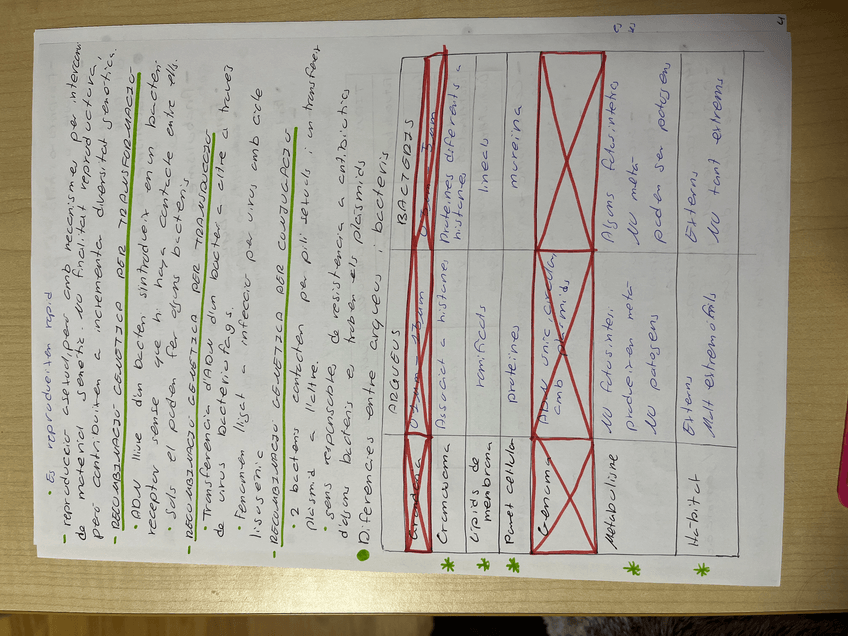 4
• Es reprodueixen rapid
- reproduccio asexual, pero amb mecanismes per intercanvi
de material genètic. No finalitat reproductora,
però contribuiexen a incrementar diversitat genètica.
- RECOMBINACIÓ GENÈTICA PER TRANSFORMACIÓ
• ADN lliure d'un bacteri s'introdueix en un bacteri
receptor sense que hi haya contacte entre ells.
• Sols el poden fer alguns bacteris.
- RECOMBINACIÓ GENÈTICA PER TRANSDUCCIÓ
• Transferencia d'ADN d'un bacteri a altre a traves
de virus bacteriofags.
• Fenomen lligat a infeccio per virus amb cicle
lisogenic
- RECOMBINACIÓ GENÈTICA PER CONJUGACIÓ
• 2 bacteris contacten per pili sexuals i un transfereix
plasmid a l'altre.
• gens responsables de resistencia a antibiotics
d'alguns bacteris es troben els plàsmids
• Diferencies entre arqueus i bacteris
ARQUEUS BACTERIS
Grandària 0,1 µm - 15 µm
Cromosoma Associat a histones Proteïnes diferents a
histones
Lípids de
membrana ramificats lineals
Paret cellular proteïnes mureïna
Genoma ADN unic circular
amb plasmids
Metabolisme NO fotosinteti Alguns fotosintetics
produeixen metà NO metà
NO patogens poden ser patogens
Hàbitat Extrems Extrems
Molt extremòfils NO tant extrems